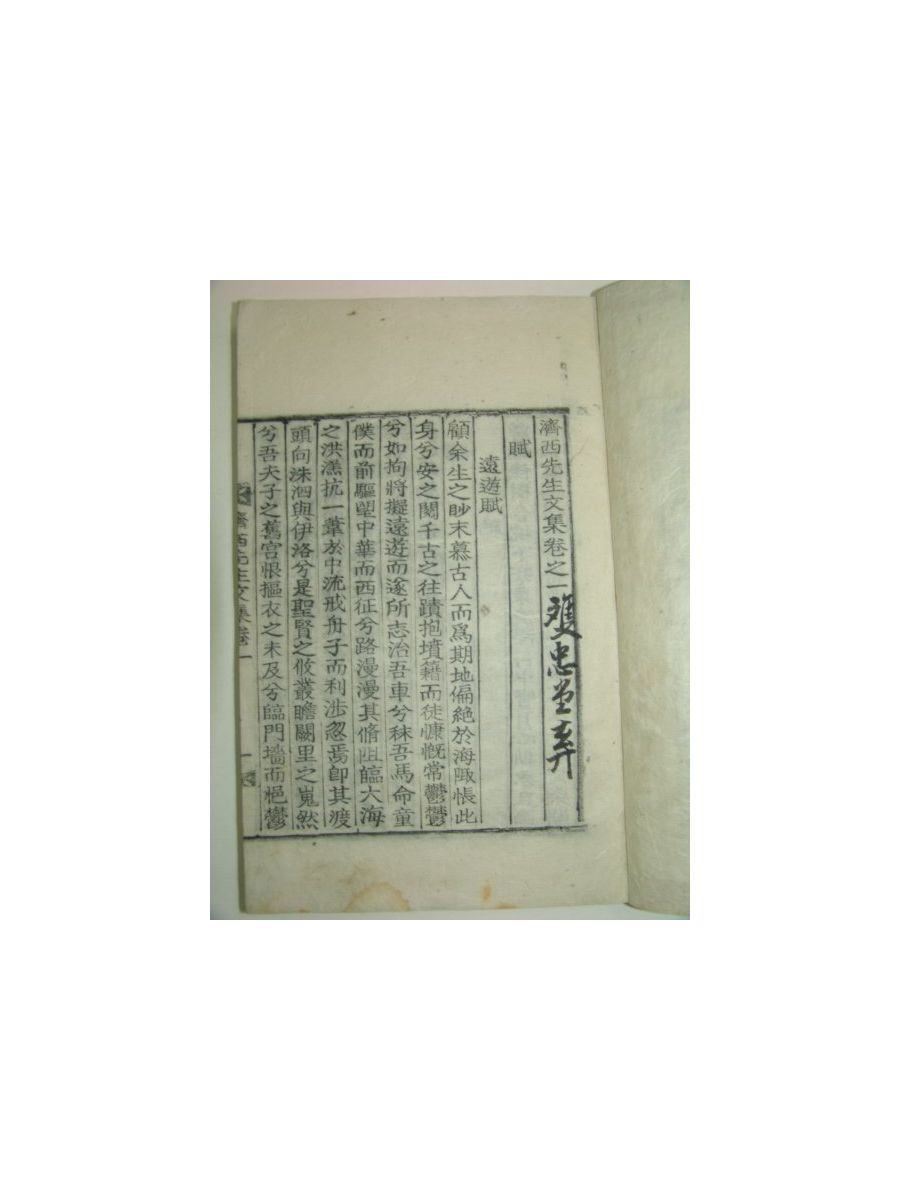 濟西先生文集卷之一 雙忠堂弆
賦
遠遊賦
顧余生之眇末慕古人而爲期地偏絶於海陬悵此
身兮安之閱千古之往蹟抱墳籍而徒慷慨常鬱鬱
兮如拘將擬遠遊而遂所志治吾車兮秣吾馬命童
僕而前驅望中華而西征兮路漫漫其脩阻臨大海
之洪濤抗一葦於中流戒舟子而利涉忽焉卽其渡
頭向洙泗與伊洛兮是聖賢之攸叢瞻闕里之嵬然
兮吾夫子之舊宮恨摳衣之未及兮臨門墻而悒鬱
濟西先生文集卷一 一